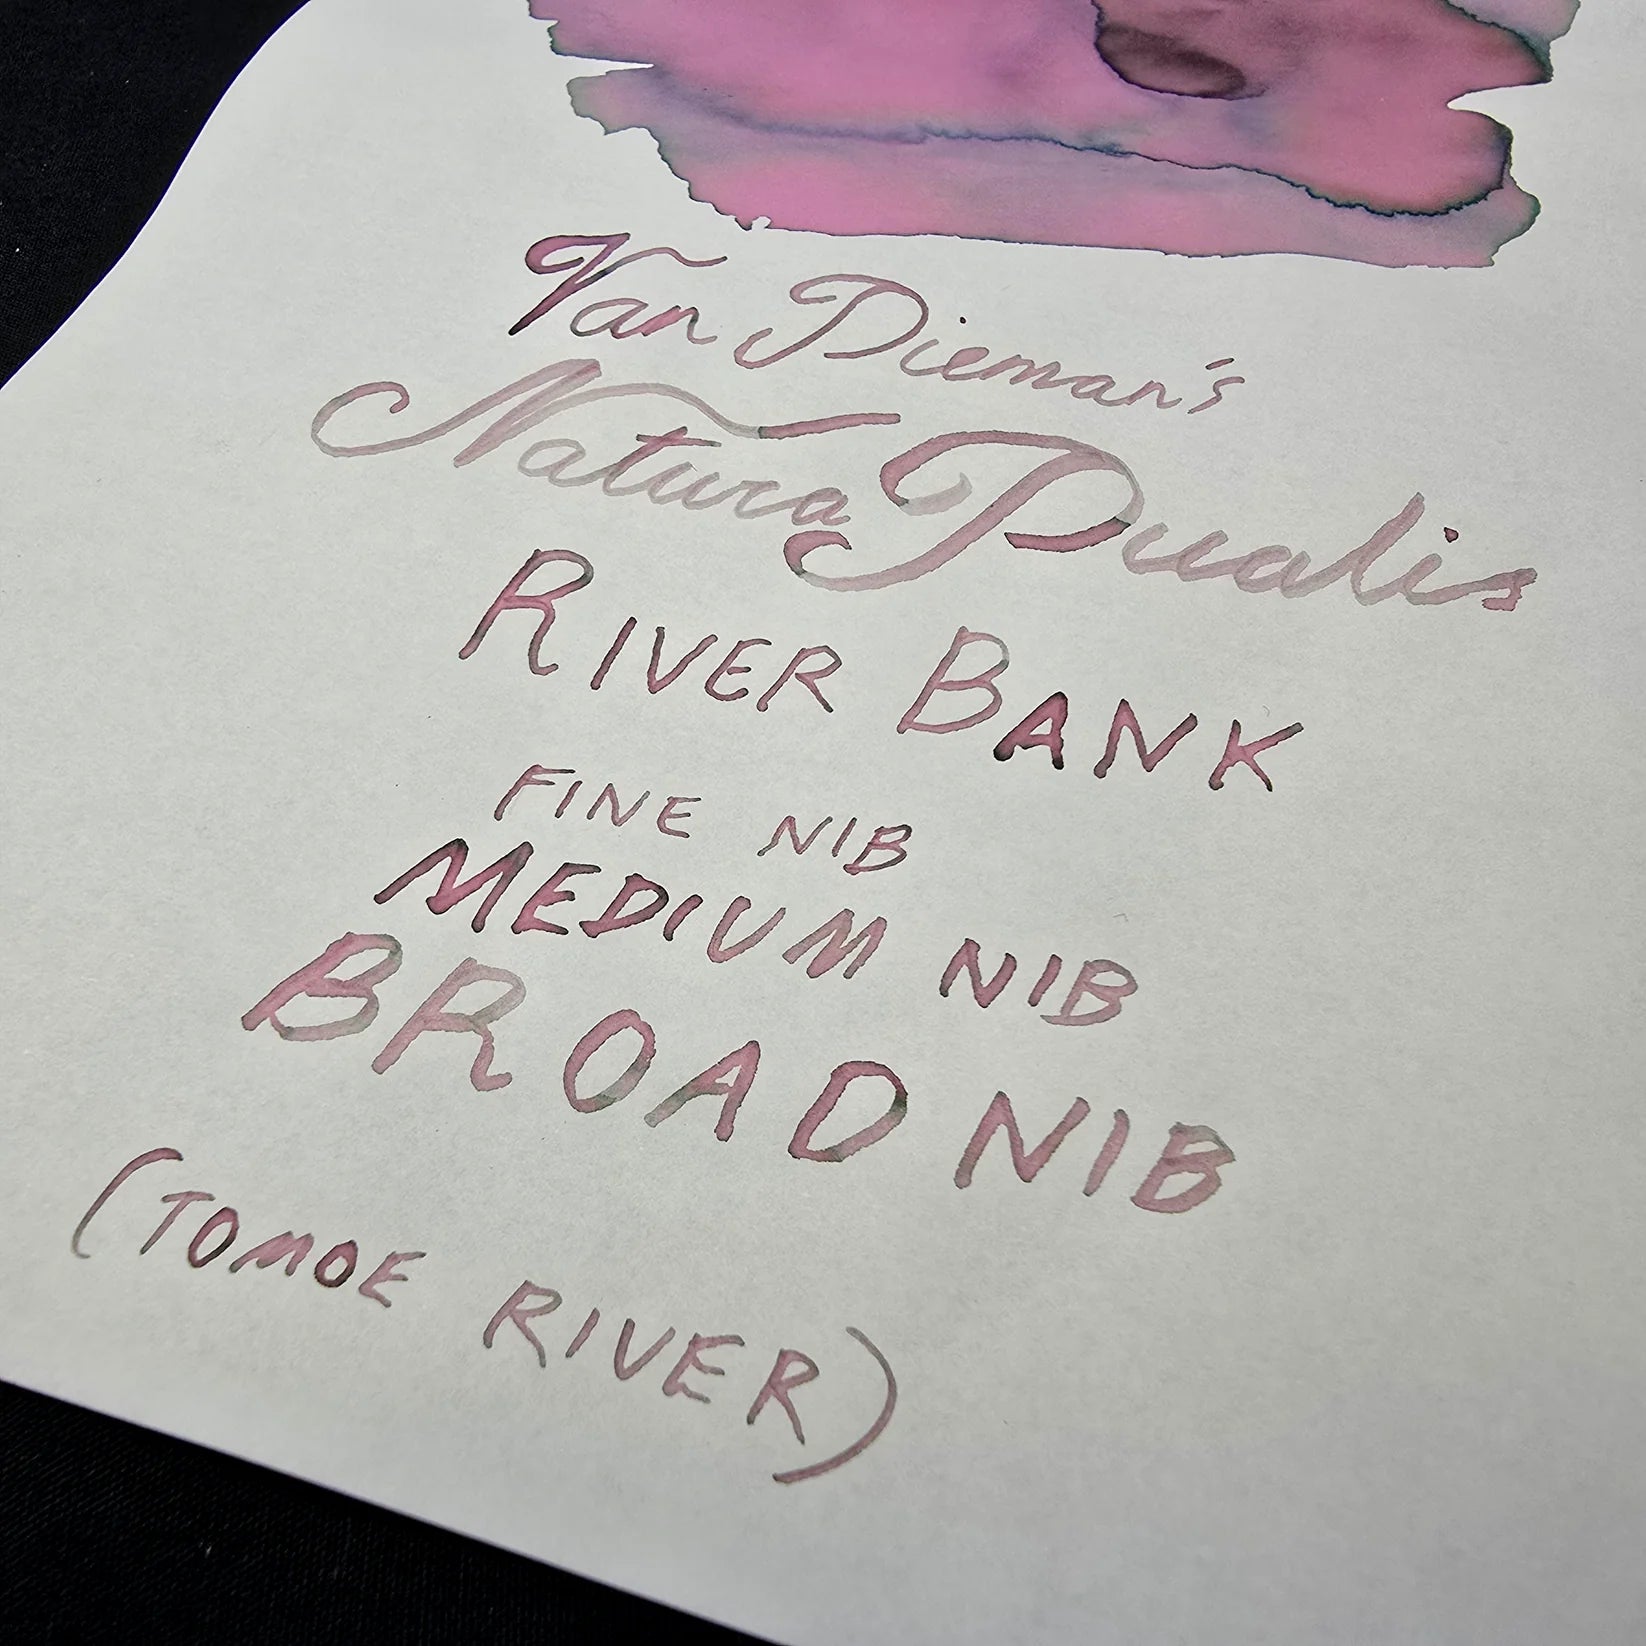 Van Dieman's
Natura Pualis
RIVER BANK
FINE NIB
MEDIUM NIB
BROAD NIB
(TOMOE RIVER)